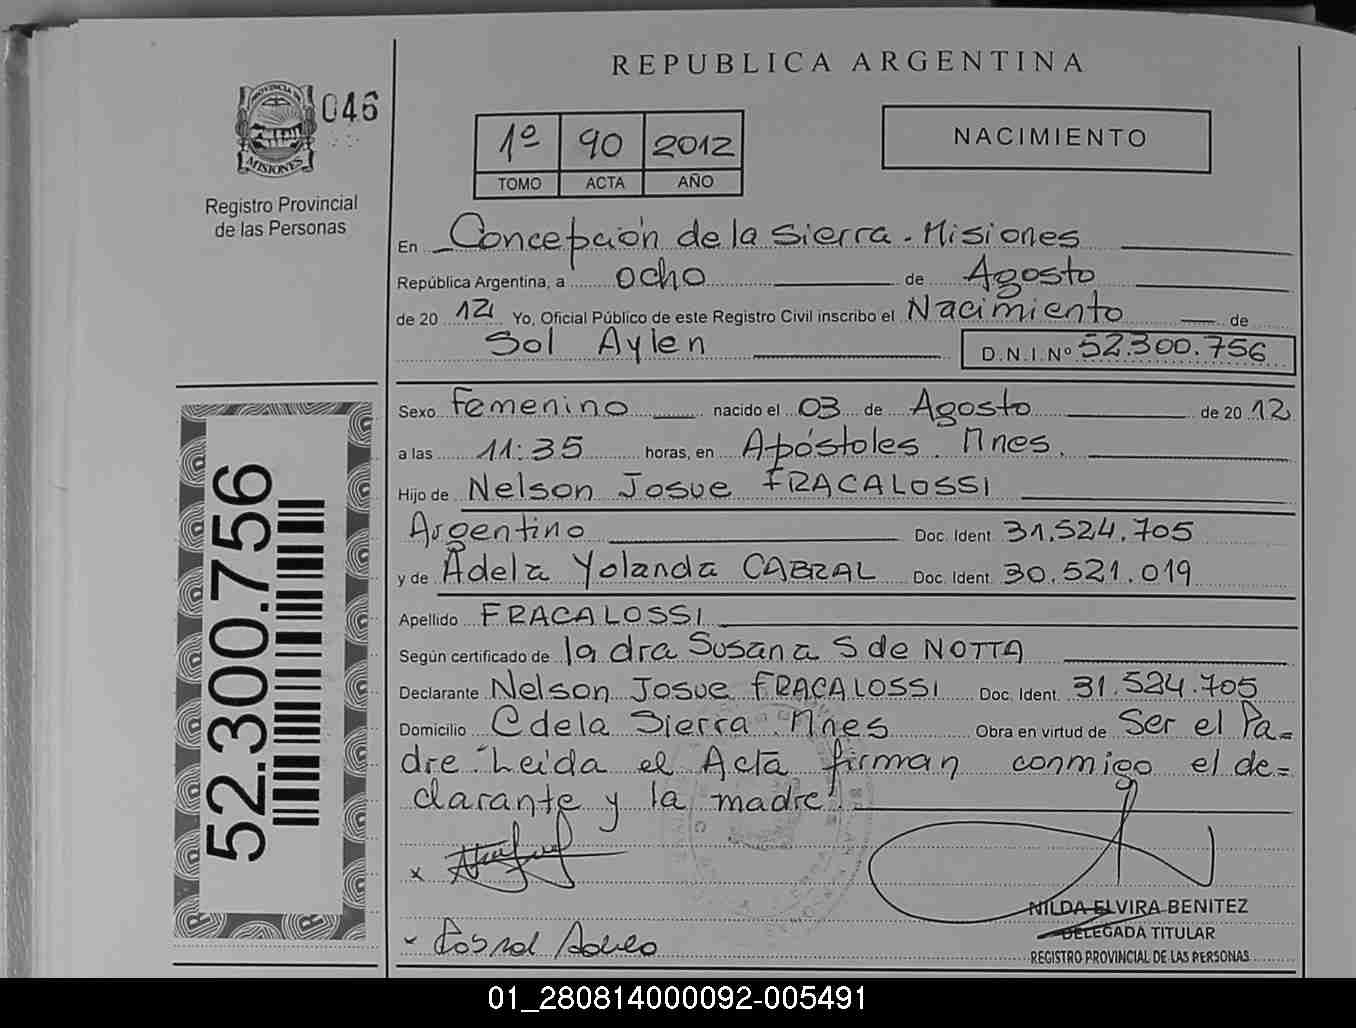 REPUBLICA ARGENTINA
PROVINCIA DE
MISIONES
046
Registro Provincial
de las Personas
1º 90 2012
TOMO ACTA AÑO
NACIMIENTO
En Concepción de la Sierra - Misiones
República Argentina, a ocho de Agosto
de 20 12 Yo, Oficial Público de este Registro Civil inscribo el Nacimiento de
Sol Aylen D.N.I.Nº 52.300.756
Sexo Femenino nacido el 03 de Agosto de 20 12
a las 11:35 horas, en Apóstoles. Mnes.
Hijo de Nelson Josue FRACALOSSI
Argentino Doc. Ident. 31.524.705
y de Adela Yolanda CABRAL Doc. Ident. 30.521.019
Apellido FRACALOSSI
Según certificado de la dra Susana S de NOTTA
Declarante Nelson Josue FRACALOSSI Doc. Ident. 31.524.705
Domicilio C de la Sierra. Mnes Obra en virtud de Ser el Pa=
dre. Leida el Acta firman conmigo el de=
clarante y la madre.
x
x Cabral Adela
NILDA ELVIRA BENITEZ
DELEGADA TITULAR
REGISTRO PROVINCIAL DE LAS PERSONAS
52.300.756
01_280814000092-005491